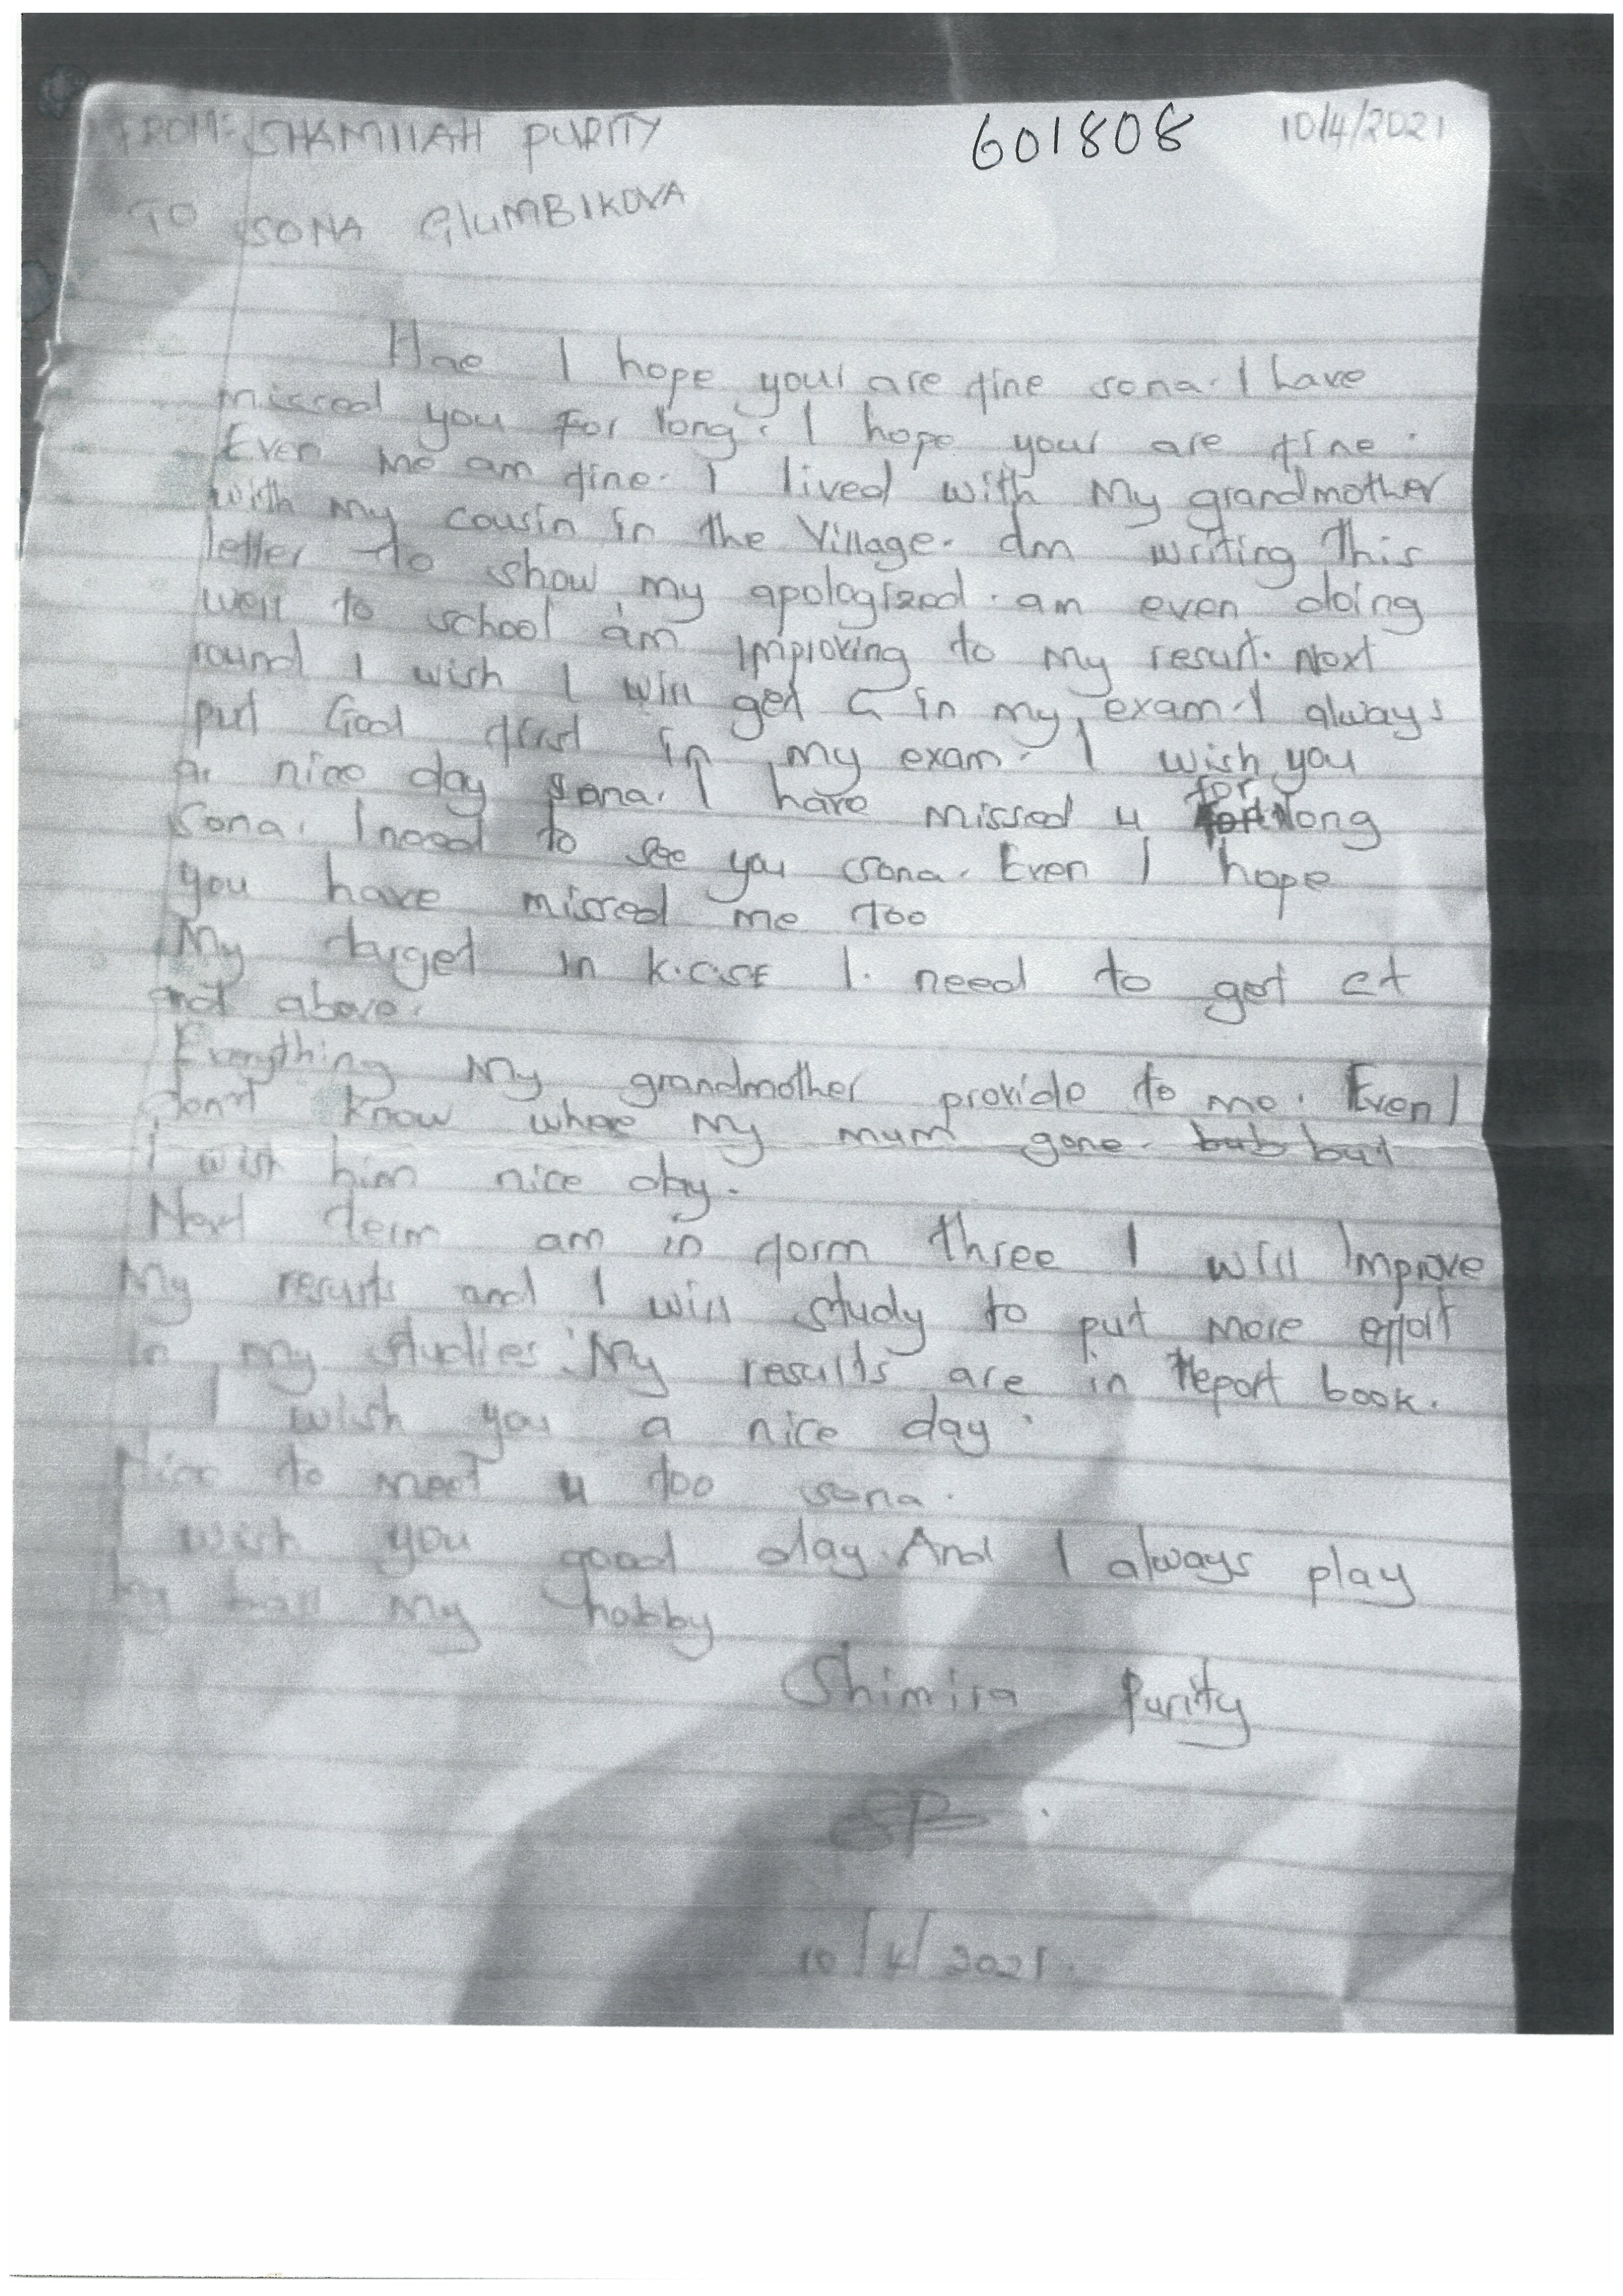 FROM: SHAMIIAH PURITY 601808 10/4/2021
TO SONA GlUMBIKOVA
Hae I hope your are fine sona. I have
missed you For long. I hope your are fine.
Even me am fine. I lived with My grandmother
with my cousin in the Village. Am writing This
letter to show my apologized. am even doing
well to school am Improving to my result. Next
round I wish I will get C in my exam. I always
put God first in my exam. I wish you
a nice day Sona. I have missed u for long
Sona. I need to see you sona. Even I hope
you have missed me too
My target in K.CSE I. need to get C+
and above.
Everything My grandmother provide to me. Even I
don't know where my mum gone. bub but
I wish him nice day.
Next term am in form three I will Improve
My results and I will study to put more effort
In my studies. My results are in Report book.
I wish you a nice day.
Nice to meet u too sona.
I wish you good day. And I always play
ball my hobby
Shimira Purity
SP
10/4/2021.